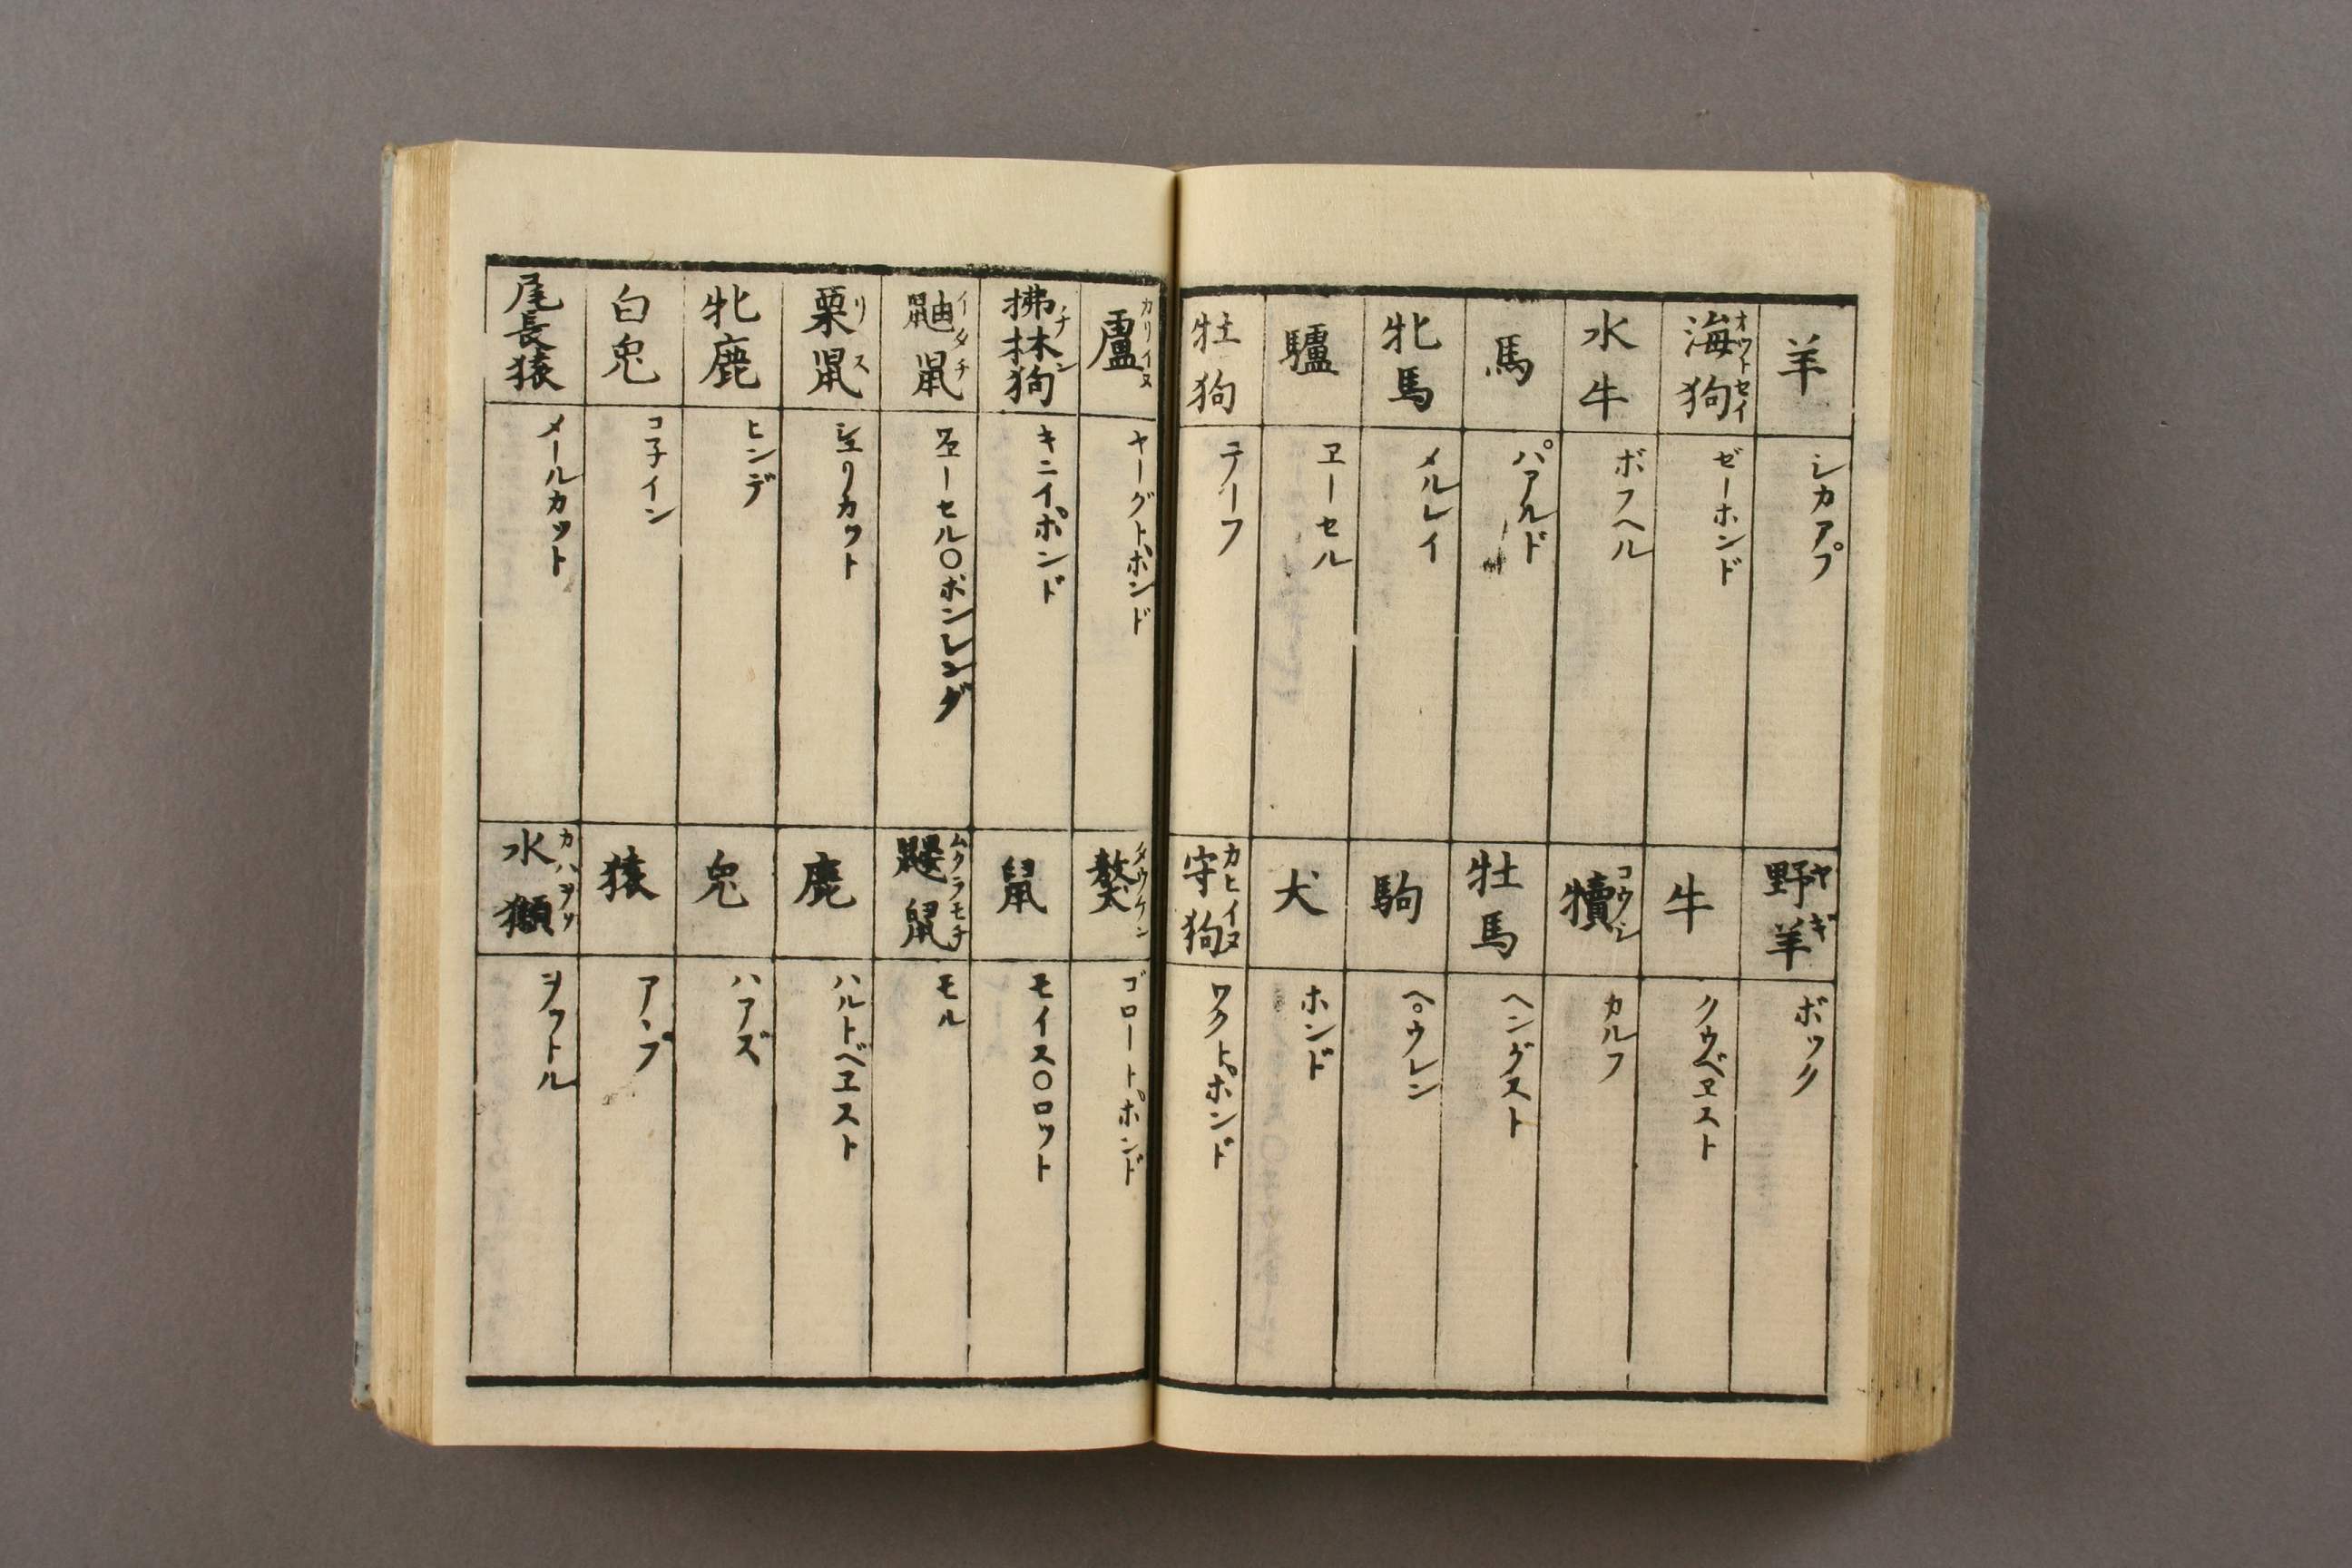 羊 シカアプ
海狗 オウトセイ ゼーホンド
水牛 ボフヘル
馬 パアルド
牝馬 メルレイ
驢 ヱーセル
牡狗 テーフ
野羊 ヤギ ボック
牛 クウベヱスト
犢 コウシ カルフ
牡馬 ヘングスト
駒 ヘ○ウレン
犬 ホンド
守狗 カヒイヌ ワクトホンド
盧 カリイヌ ヤーグトホンド
拂林狗 チン キニイポンド
鼬鼠 イタチ ヱーセル○ボンレング
栗鼠 リス シヱリカット
牝鹿 ヒンデ
白兎 コ子イン
尾長猿 メールカット
獒 タウケン ゴロートホンド
鼠 モイス○ロット
鼴鼠 ムクラモチ モル
鹿 ハルトベヱスト
兎 ハアズ
猿 アヽプ
水獺 カハヲソ ヲットル